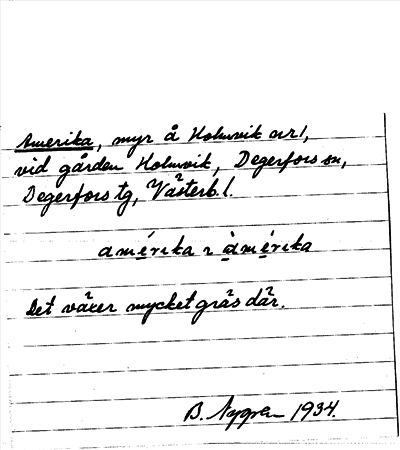 Amerika, myr å Holmvik nr 1,
vid gården Holmvik, Degerfors sn,
Degerfors tg, Västerb. l.
amérika ꝛ àmérika
Det växer mycket gräs där.
B. Nygren 1934.